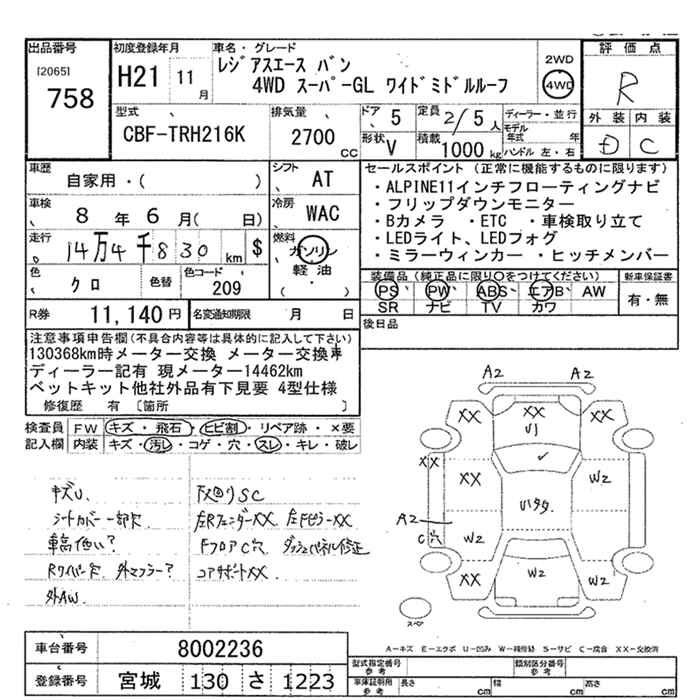 出品番号 初度登録年月 車名・グレード 評価点
[2065]
758
H21 11月
レジアスエース バン
4WD スーパーGL ワイドミドルルーフ
2WD
4WD
R
外装 内装
D C
型式 排気量 ドア 5 定員 2/5人 ディーラー・並行
CBF-TRH216K 2700cc 形状 V 積載 1000kg
モデル年式 年
ハンドル 左・右
車歴 シフト
自家用・( ) AT
セールスポイント (正常に機能するものに限ります)
・ALPINE11インチフローティングナビ
・フリップダウンモニター
・Bカメラ ・ETC ・車検取り立て
・LEDライト、LEDフォグ
・ミラーウィンカー ・ヒッチメンバー
車検 冷房
8年 6月( 日) WAC
走行 燃料
14万4千830km $ ガソリン
軽油
・( )
色 クロ 色替 色コード 209
装備品 (純正品に限り○をつけてください) 新車保証書
PS PW ABS エアB AW 有・無
SR ナビ TV カワ
R券 11,140円 名変通知期限 月 日
後日品
注意事項申告欄 (不具合内容等は具体的に記入して下さい)
130368km時メーター交換 メーター交換車
ディーラー記有 現メーター14462km
ベットキット他社外品有下見要 4型仕様
修復歴 有 [箇所 ]
検査員 FW キズ・飛石・ヒビ割・リペア跡・×要
記入欄 内装 キズ・汚し・コゲ・穴・スレ・キレ・破レ
キズU、 下廻りSC
シートカバー一部欠 左Rフェンダーxx 左Fピラーxx
車高低い? FフロアC穴 ダッシュパネル修正
Rワイパー欠 外マフラー? コアサポートxx
外AW
A2 A2
XX XX XX
U1
XX XX W2
A2 ハタタ
C穴 W2 W2
XX W2 W2
スペア
A-キズ E-エクボ U-凹み W-補修跡 S-サビ C-腐食 XX-交換済
車台番号 8002236
登録番号 宮城 130 さ 1223
型式指定番号 参考 類別区分番号 参考
車庫証明用 参考 長さ cm 幅 cm 高さ cm